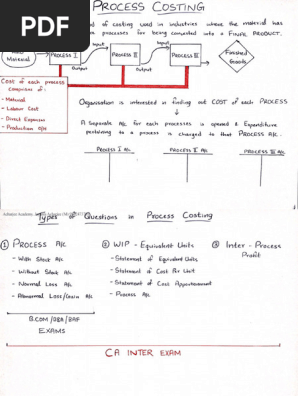 PDF
PROCESS COSTING
of costing used in industries where the material has
processes for being converted into a FINAL PRODUCT.
Material
PROCESS I
Input
PROCESS II
Input
PROCESS III
Finished
Goods
Output
Output
Cost of each process
comprises of:
- Material
- Labour Cost
- Direct Expenses
- Production O/H
Organisation is interested in finding out COST of each PROCESS
A Separate A/c for each processes is opened & Expenditure
pertaining to a process is charged to that PROCESS A/c.
PROCESS I A/c
PROCESS II A/c
PROCESS III A/c
Types of Questions in Process Costing
① PROCESS A/c
- With Stock A/c
- Without Stock A/c
- Normal Loss A/c
- Abnormal Loss/Gain A/c
B.COM /BBA/ BAF
EXAMS
② WIP - Equivalent Units
- Statement of Equivalent Units
- Statement of Cost Per Unit
- Statement of Cost Apportionment
- Process A/c
③ Inter - Process
Profit
CA INTER EXAM